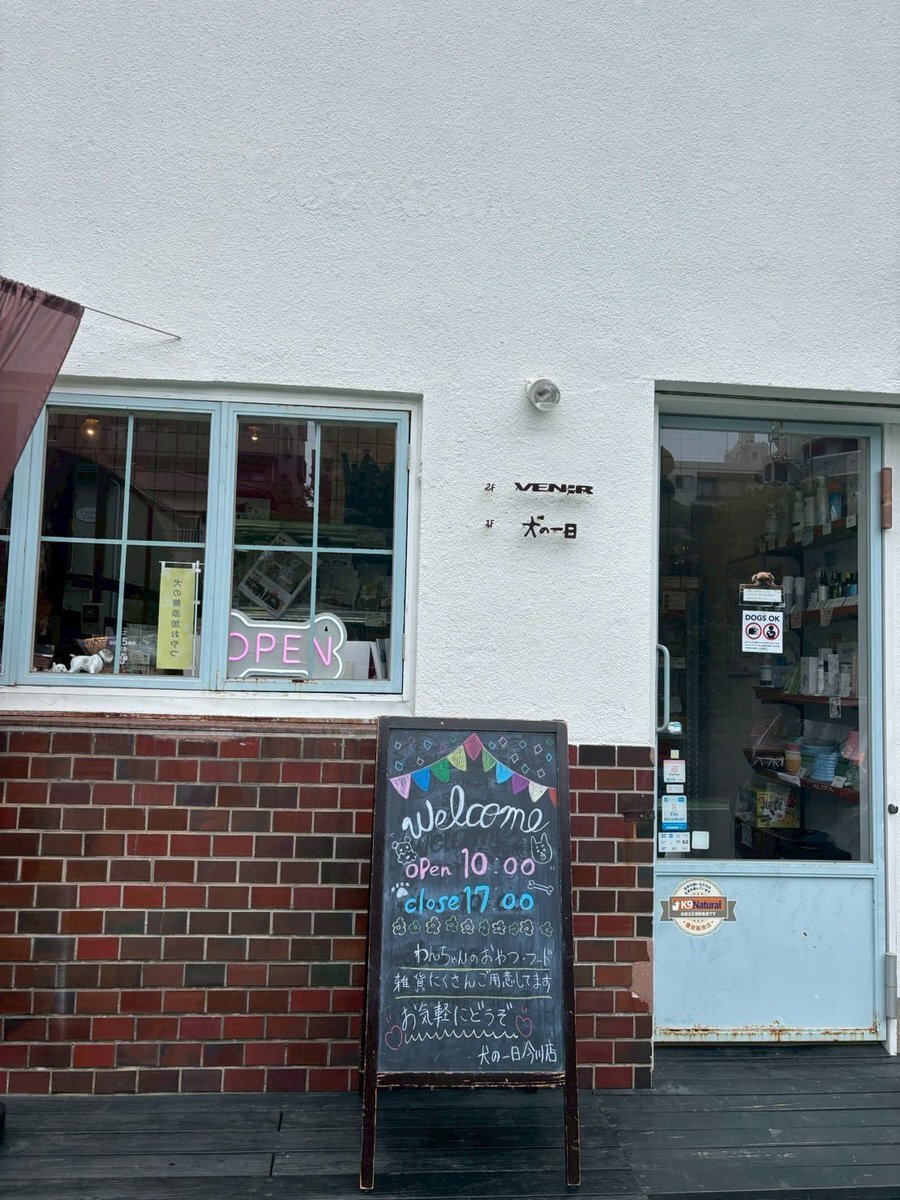 2F VENIR
1F 犬の一日
犬の無添加おやつ
OPEN
DOGS OK
PayPay
Edy
K9Natural
Welcome
open 10:00
close 17:00
わんちゃんのおやつ・フード
雑貨たくさんご用意してます
お気軽にどうぞ
犬の一日今川店